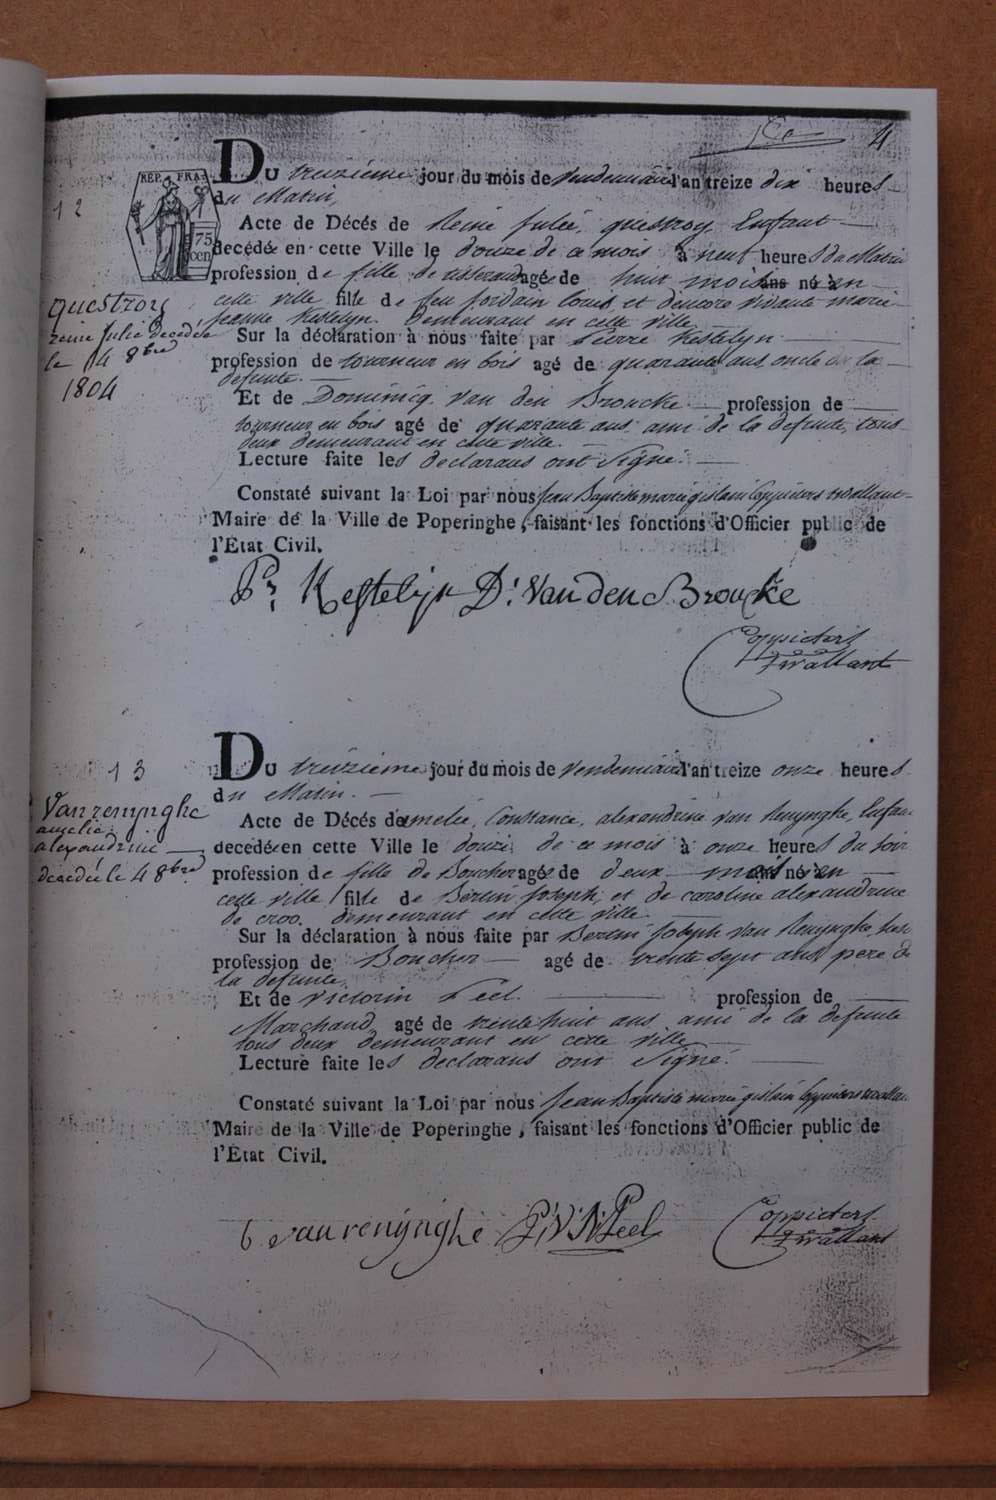 4
REP. FRA.
75
cen
12
Du treizième jour du mois de Vendemiaire l'an treize dix heures
du Matin,
Acte de Décés de Reine Julie, questroy Enfant
decédée en cette Ville le douze de ce mois à neuf heures du Matin
profession de fille de tisserand agée de huit mois ans né en
cette ville fille de feu Jordain Louis, et d'encore vivante marie
jeanne Kestelyn. Demeurant en cette ville
questroy
reine Julie decedée
le 4 8bre
1804
Sur la déclaration à nous faite par Pierre Kestelyn
profession de tourneur en bois agé de quarante ans oncle de la
defunte.
Et de Dominicq Van den Broucke profession de
tourneur en bois agé de quarante ans ami de la defunte, tous
deux demeurant en cette ville.
Lecture faite les declarans ont Signé.
Constaté suivant la Loi par nous Jean Baptiste marie gislain Coppieters twallant
Maire de la Ville de Poperinghe, faisant les fonctions d'Officier public de
l'Etat Civil.
Pr. Kestelijn D. Van den Broucke
Coppieters
Twallant
13
Du treizième jour du mois de Vendemiaire l'an treize onze heures
du Matin.
Vanrenynghe
amelie
alexandrine
décedée le 4 8bre
Acte de Décés de amelie, Constance, alexandrine van Renynghe, Enfan
decedée en cette Ville le douze de ce mois à onze heures du soir
profession de fille de Boucher agée de deux mois né en
cette ville fille de Bertin Joseph, et de caroline alexandrine
de croo. demeurant en cette ville
Sur la déclaration à nous faite par Bertin Joseph van Renynghe,
profession de Boucher agé de trente sept ans pere de
la defunte.
Et de Victorin Peel. profession de
Marchand agé de trente huit ans ami de la defunte
tous deux demeurant en cette ville
Lecture faite les declarans ont Signé.
Constaté suivant la Loi par nous Jean Baptiste marie gislain Coppieters twallan
Maire de la Ville de Poperinghe, faisant les fonctions d'Officier public de
l'Etat Civil.
b vanrenijnghe P. V. N. Peel
Coppieters
Twallant